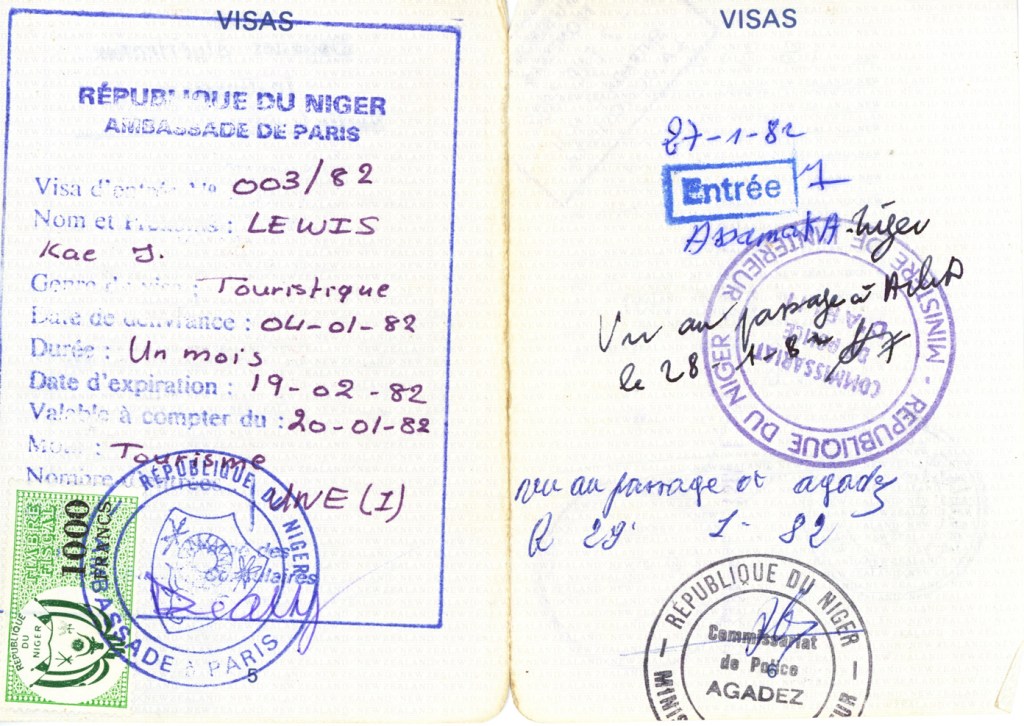 VISAS
RÉPUBLIQUE DU NIGER
AMBASSADE DE PARIS
Visa d'entrée No 003/82
Nom et Prénoms : LEWIS
Kae J.
Genre de visa : Touristique
Date de délivrance : 04-01-82
Durée : Un mois
Date d'expiration : 19-02-82
Valable à compter du : 20-01-82
Motif : Tourisme
Nombre d'entrées UNE (I)
TIMBRE FISCAL
1000 FRANCS
RÉPUBLIQUE DU NIGER
RÉPUBLIQUE DU NIGER
AMBASSADE à PARIS
5
VISAS
27-1-82
Entrée 1
Assamaka-Niger
Vu au passage à Arlit
le 28 1-82
RÉPUBLIQUE DU NIGER - MINISTÈRE DE L'INTERIEUR
COMMISSARIAT
DE POLICE
vu au passage à agadez
le 29 1- 82
RÉPUBLIQUE DU NIGER
Commissariat
de Police
AGADEZ
6